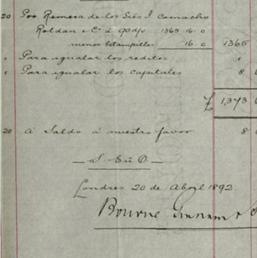 20 Por Remesa de los Sres J. Camacho
Roldan & Co á 90 d/s 1365 16 0
menos estampillas 16 0 1365
" Para igualar los reditos "
" Para igualar los capitales 8
£ 1,373 0
20 á Saldo á nuestro favor 8
S. E. u O.
Londres 20 de Abril 1892
Bourne